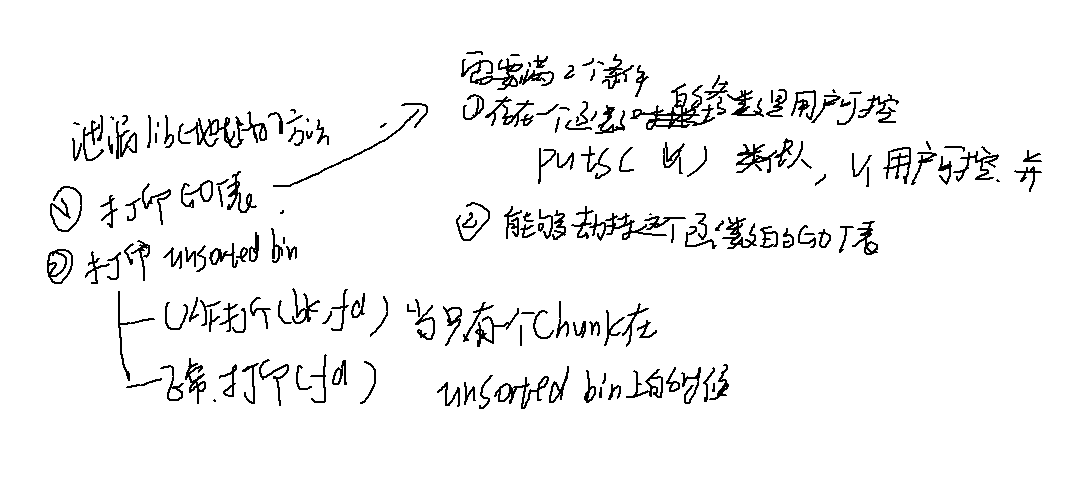 泄漏libc地址的方法
① 打印GOT表
② 打印 unsorted bin
UAF打印(bk,fd) 当只有一个Chunk在
正常打印(fd) unsorted bin上的时候
需要满2个条件
①存在一个函数的参数是用户可控
puts( ) 类似, 用户可控.并
② 能够劫持这个函数的GOT表